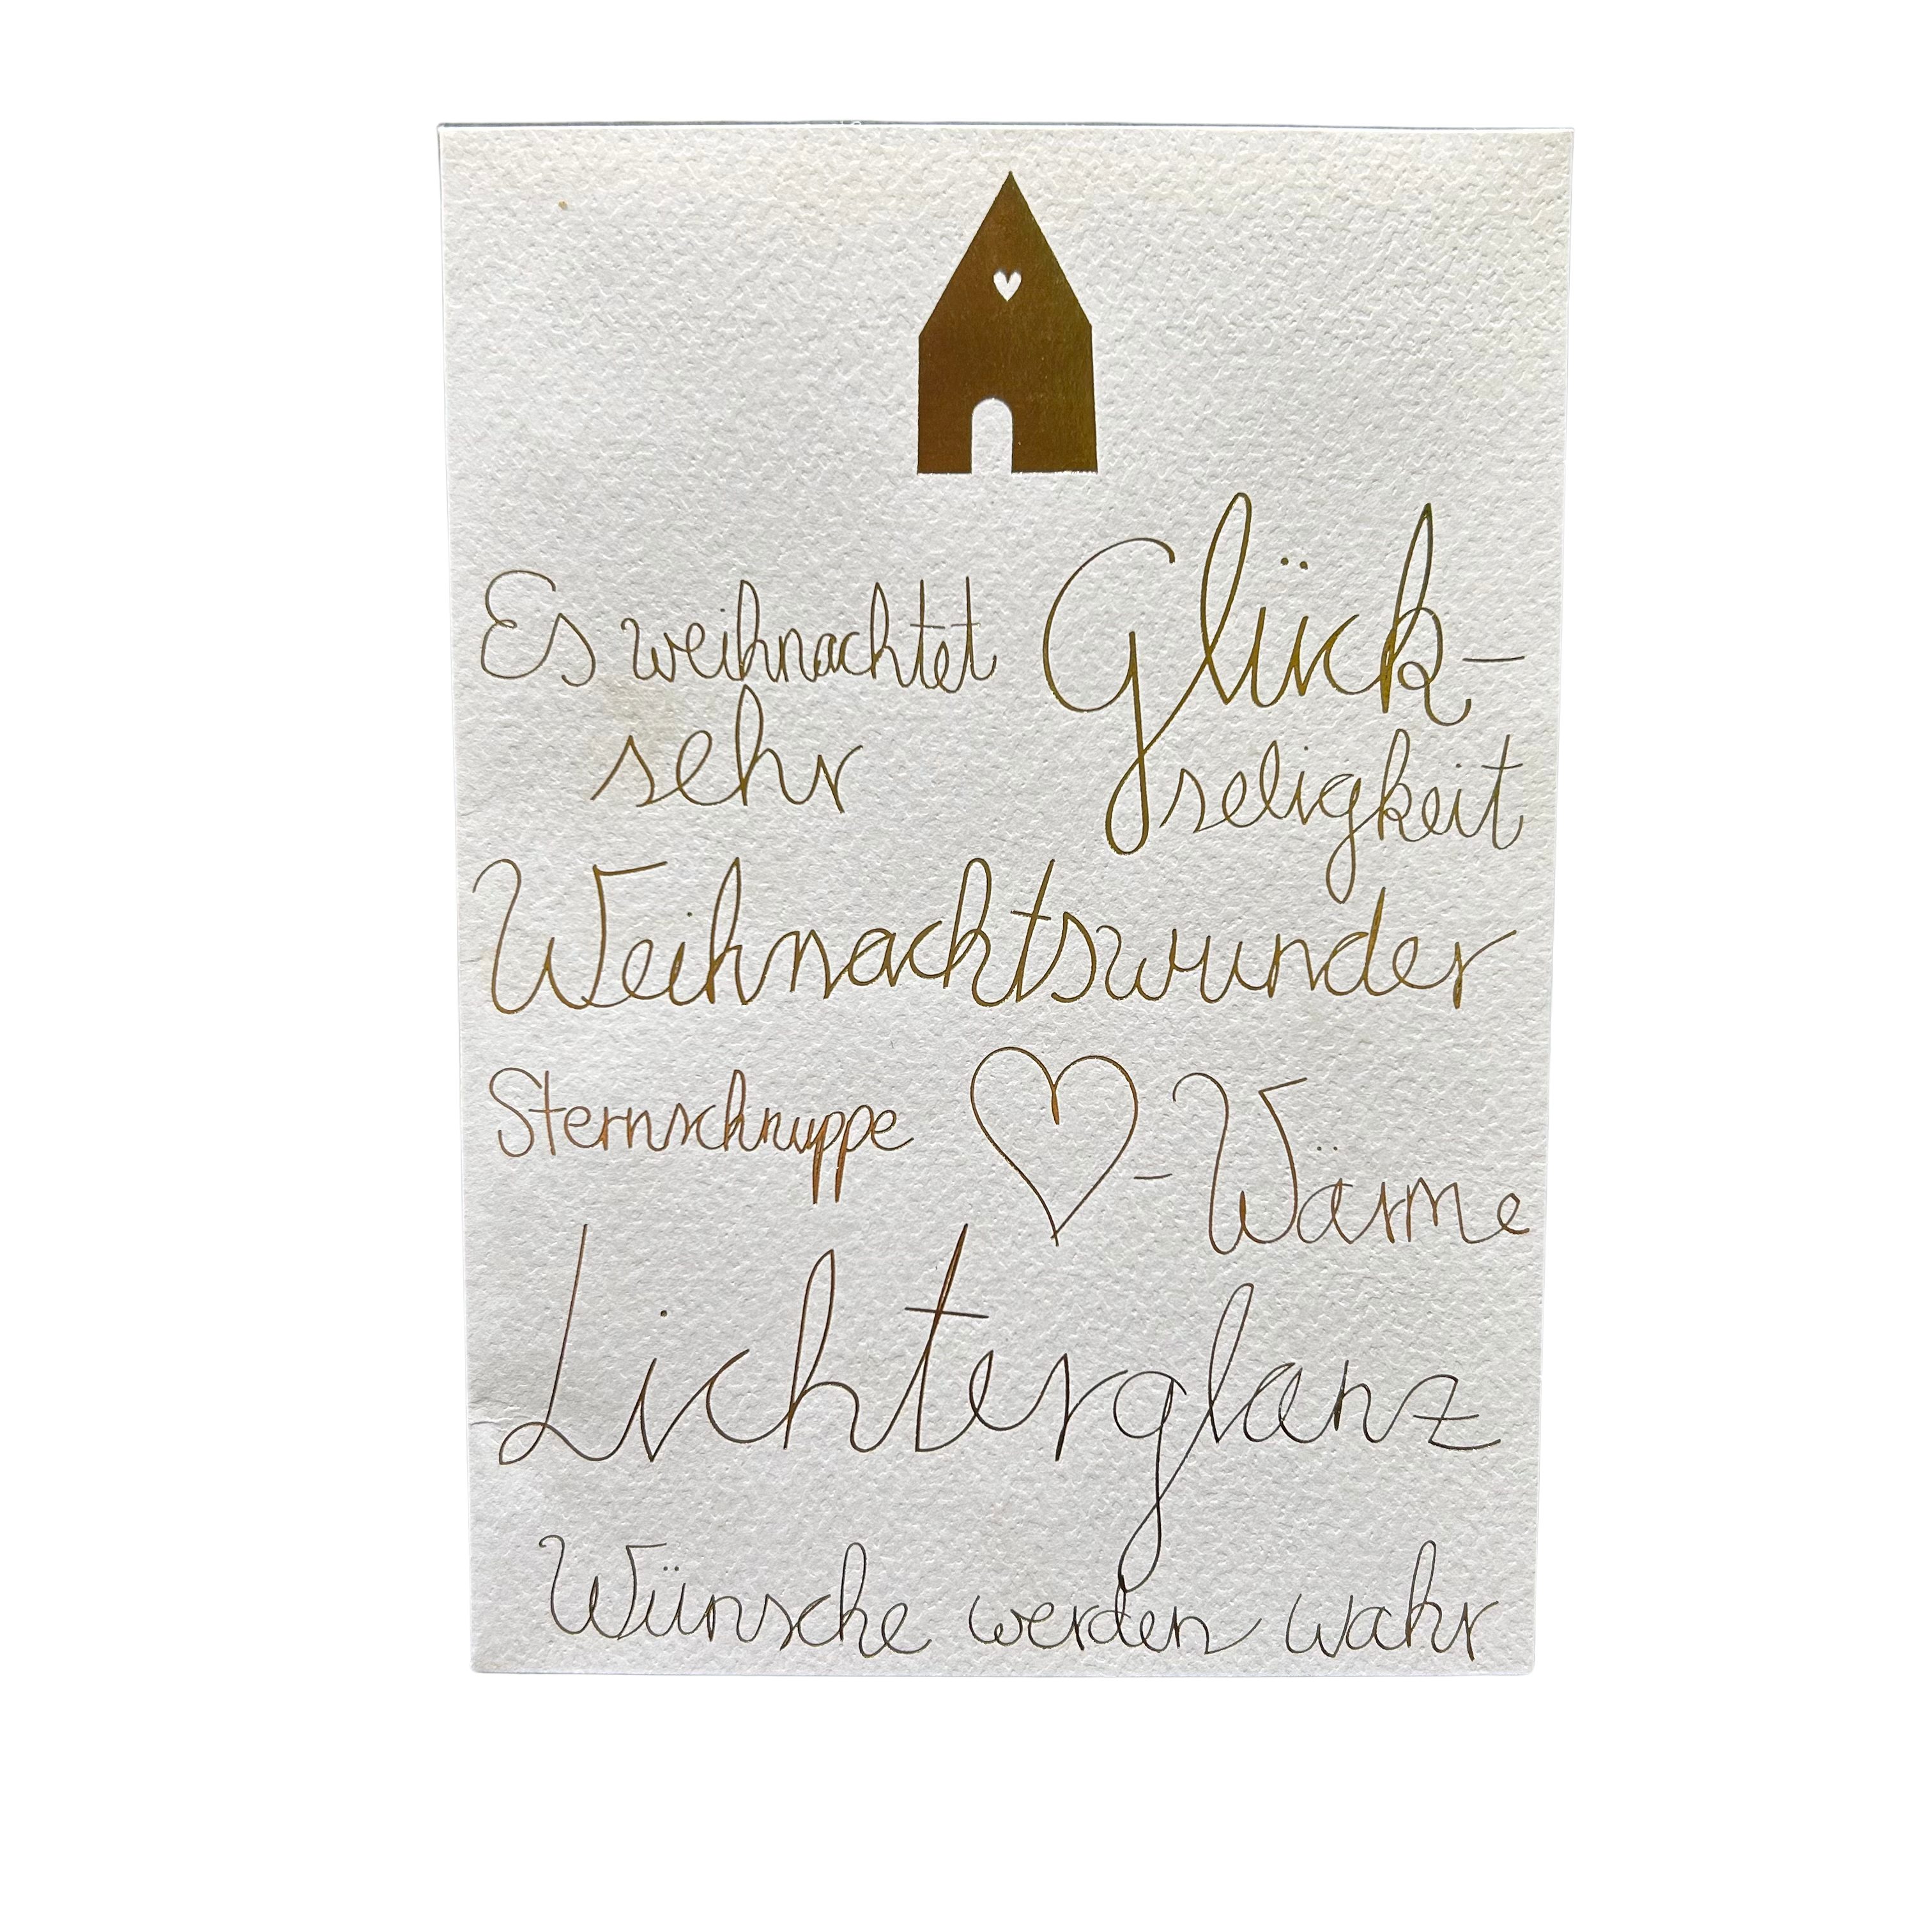 Es weihnachtet Glück-
sehr seligkeit
Weihnachtswunder
Sternschnuppe ♡-Wärme
Lichterglanz
Wünsche werden wahr